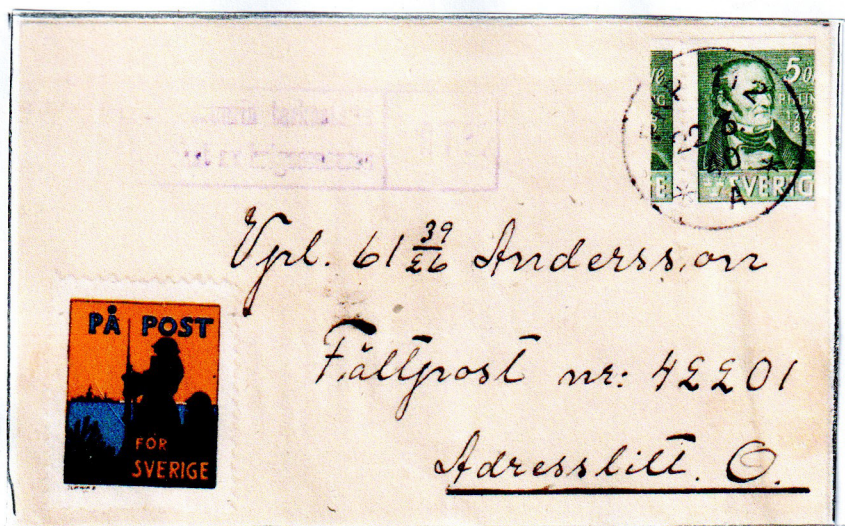 5
SVERIG
22 3
40
A
Vpl. 61 39/26 Andersson
Fältpost nr: 42201
Adresslitt. O.
PÅ POST
FÖR
SVERIGE